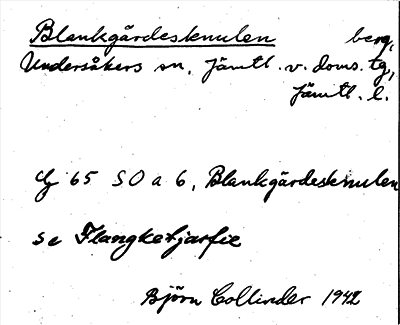 Blankgårdesknulen berg,
Undersåkers sn, Jämtl. v. doms. tg,
Jämtl. l.
65 SO a 6, Blankgårdesknulen
se Flangketjarfie
Björn Collinder 1942